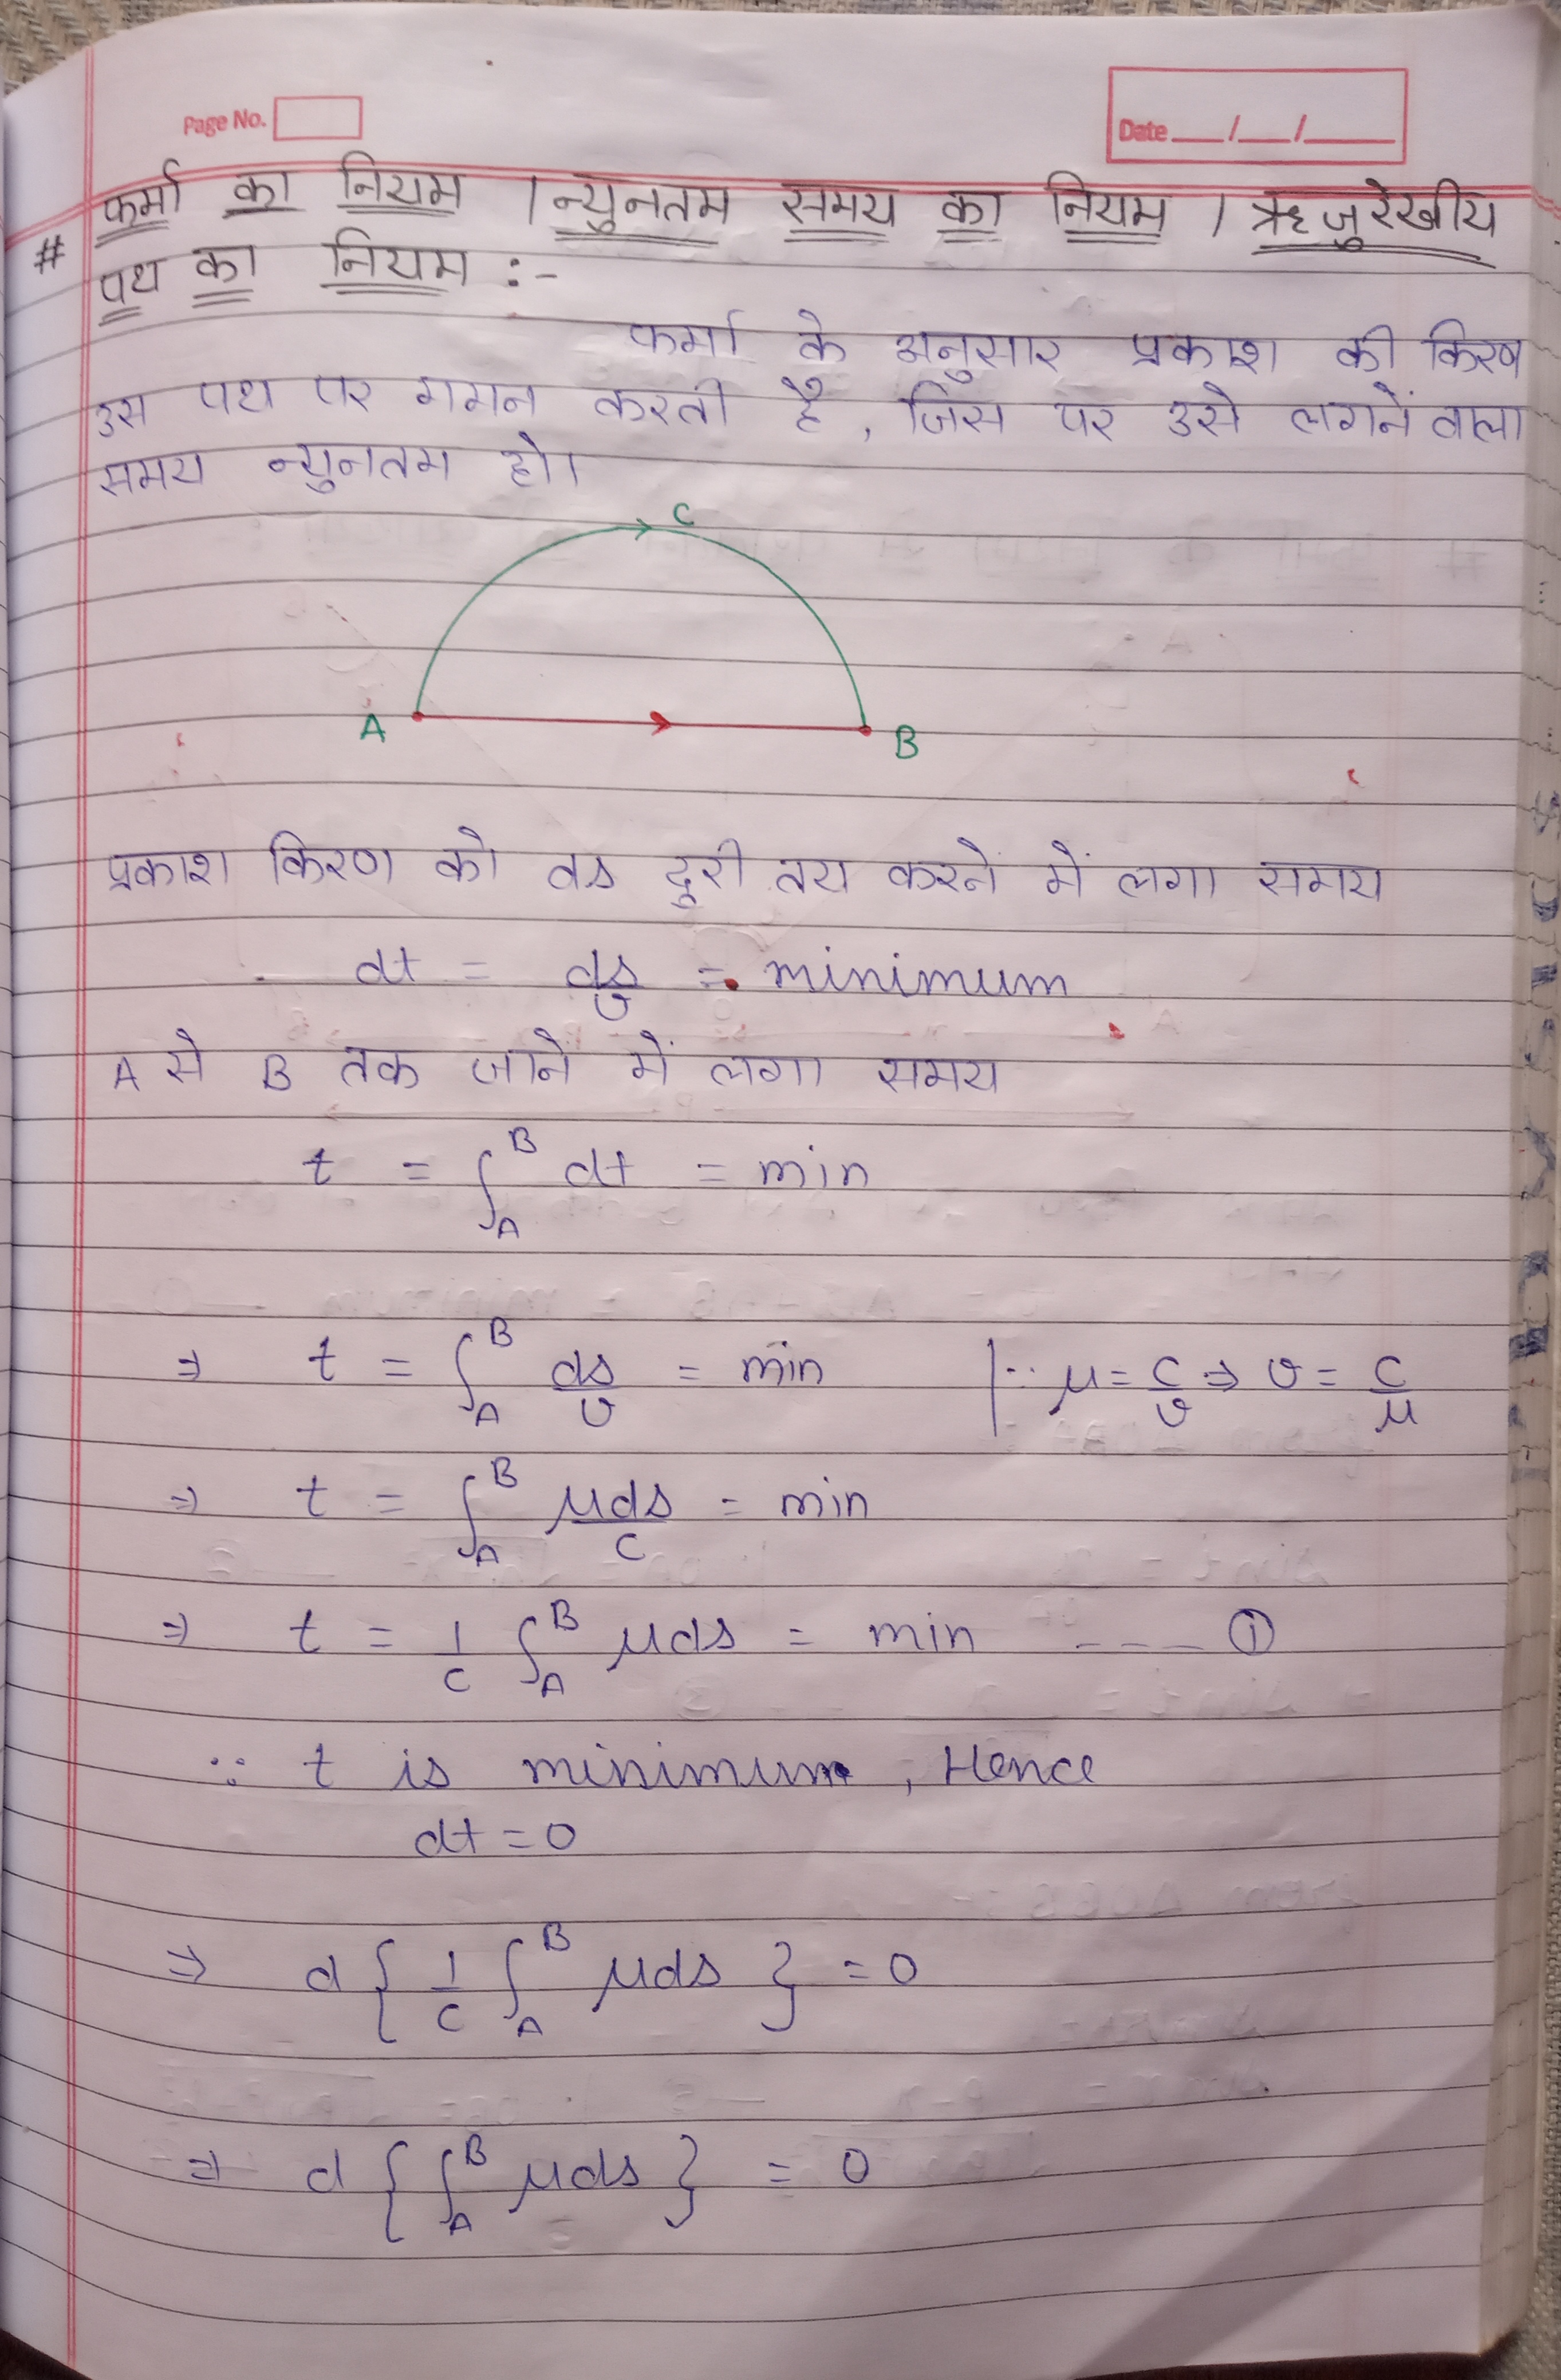 Page No.
Date __/__/____
# फर्मा का नियम / न्युनतम समय का नियम / ऋजुरेखीय
पथ का नियम :-
फर्मा के अनुसार प्रकाश की किरण
उस पथ पर गमन करती है, जिस पर उसे लगनें वाला
समय न्युनतम हो।
C
A B
प्रकाश किरण को ds दुरी तय करने में लगा समय
dt = ds/v = minimum
A से B तक जाने में लगा समय
t = ∫_A^B dt = min
⇒ t = ∫_A^B ds/v = min | ∵ μ = c/v ⇒ v = c/μ
⇒ t = ∫_A^B μds/c = min
⇒ t = 1/c ∫_A^B μds = min ---- ①
∵ t is minimum, Hence
dt = 0
⇒ d { 1/c ∫_A^B μds } = 0
⇒ d { ∫_A^B μds } = 0